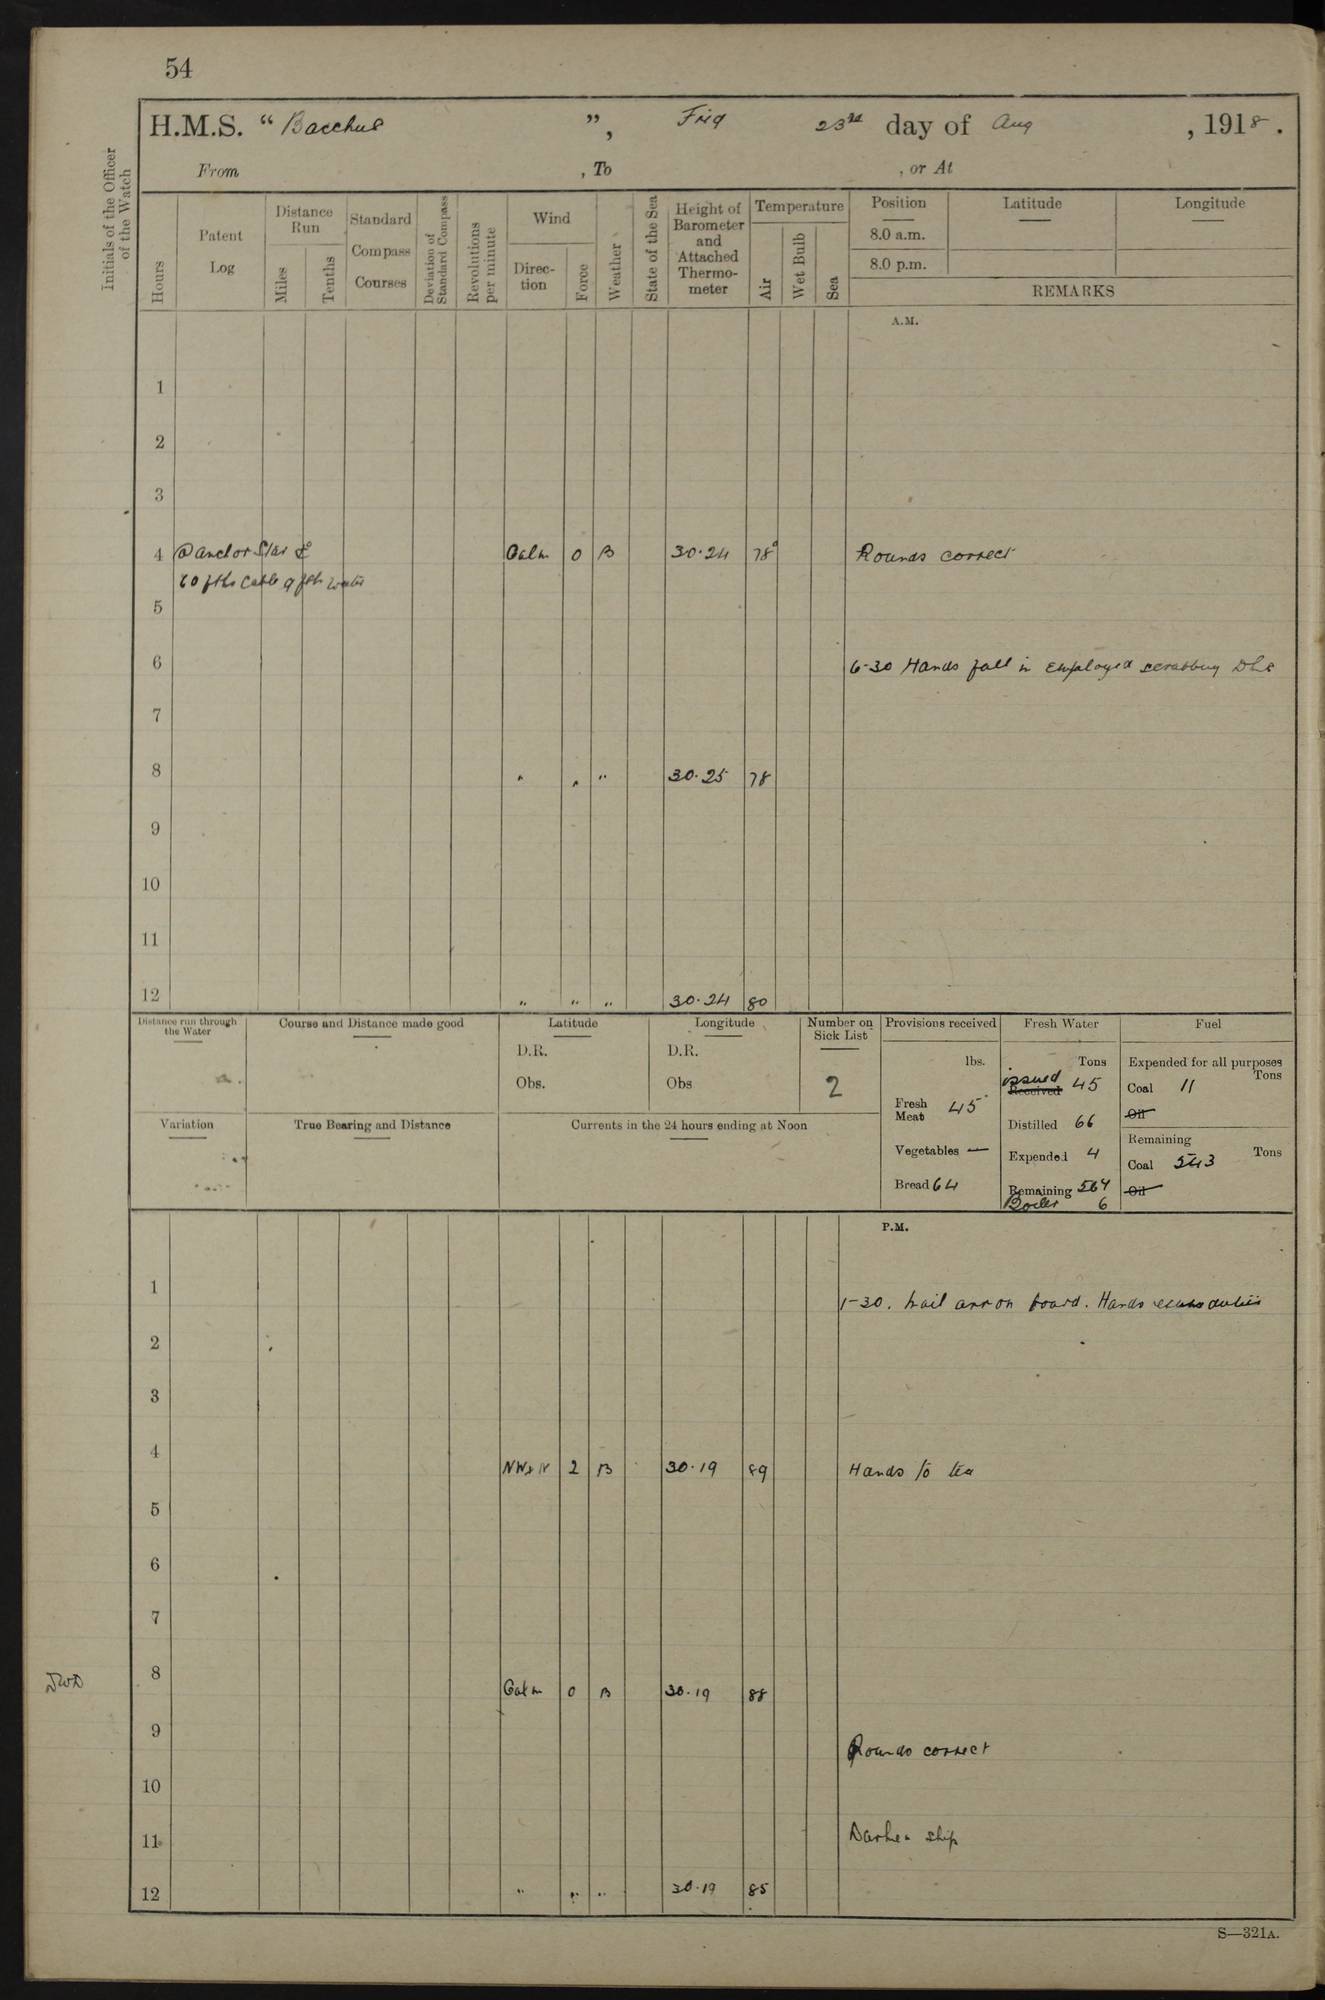 54
H.M.S. “ Bacchus ”, Frid 23rd day of Aug , 1918.
From , To , or At
Initials of the Officer of the Watch
Hours
Patent Log
Distance Run
Miles
Tenths
Standard Compass Courses
Deviation of Standard Compass
Revolutions per minute
Wind
Direc-tion
Force
Weather
State of the Sea
Height of Barometer and Attached Thermo-meter
Temperature
Air
Wet Bulb
Sea
Position
8.0 a.m.
8.0 p.m.
Latitude
Longitude
REMARKS
A.M.
1
2
3
4 @ anchor Star Calm 0 B 30.24 78° Rounds correct
60 fths Cable 9 fth water
5
6 6-30 Hands fall in employed scrubbing
7
8 " " " 30.25 78
9
10
11
12 " " " 30.24 80
Distance run through the Water
Course and Distance made good
Latitude
D.R.
Obs.
Longitude
D.R.
Obs
Number on Sick List
2
Provisions received
lbs.
Fresh Meat 45
Vegetables —
Bread 64
Fresh Water
Tons
issued Received 45
Distilled 66
Expended 4
Remaining 564
Boiler 6
Fuel
Expended for all purposes
Tons
Coal 11
Oil
Remaining
Coal 543 Tons
Oil
Variation
True Bearing and Distance
Currents in the 24 hours ending at Noon
P.M.
1 1-30. Mail arr on board. Hands duties
2
3
4 NW 2 B 30.19 89 Hands to tea
5
6
7
8 Calm 0 B 30.19 88
9 Rounds correct
10
11 Darken ship
12 " " " 30.19 85
S—321A.